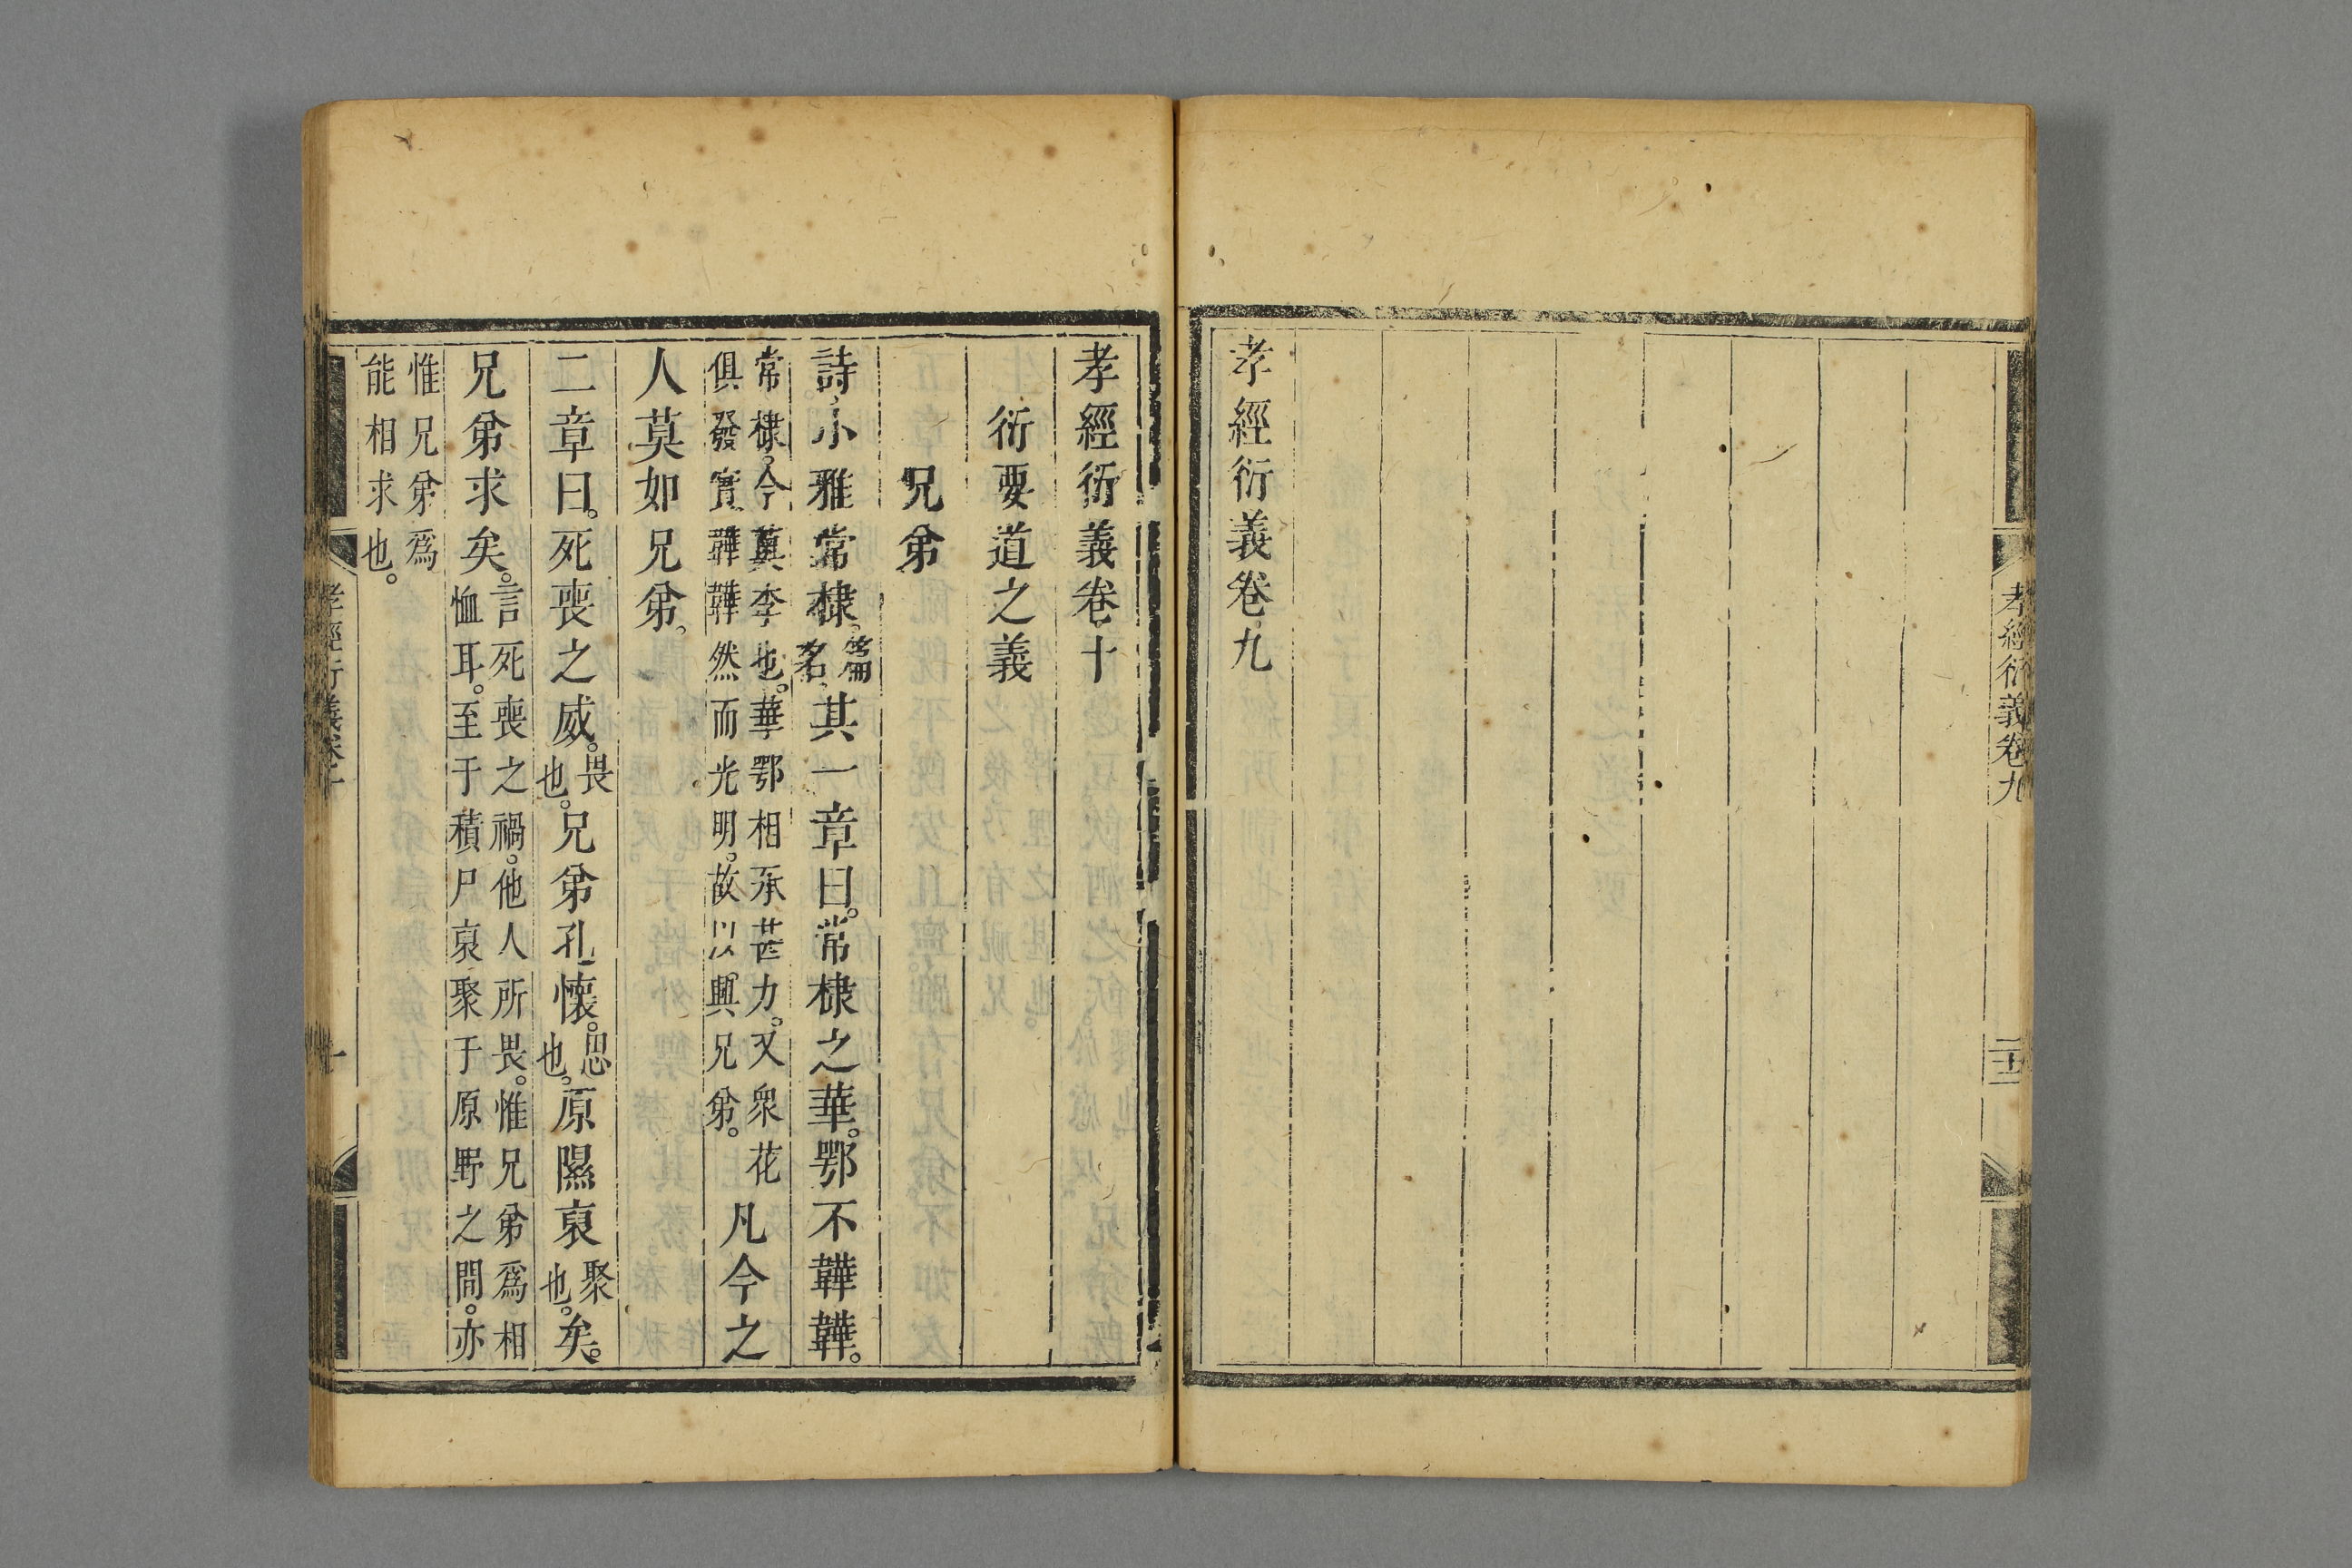 孝經衍義卷九
二十一
孝經衍義卷九
孝經衍義卷十
衍要道之義
兄弟
詩小雅常棣篇名其一章曰。常棣之華。鄂不韡韡。
常棣。今薁李也。華鄂相承甚力。又衆花
俱發實。韡韡然而光明。故以興兄弟。凡今之
人莫如兄弟。
二章曰。死喪之威。畏也。兄弟孔懷。思也。原隰裒聚也。矣。
兄弟求矣。言死喪之禍。他人所畏。惟兄弟爲相
恤耳。至于積尸裒聚于原野之間。亦
惟兄弟爲
能相求也。
孝經衍義卷十
一